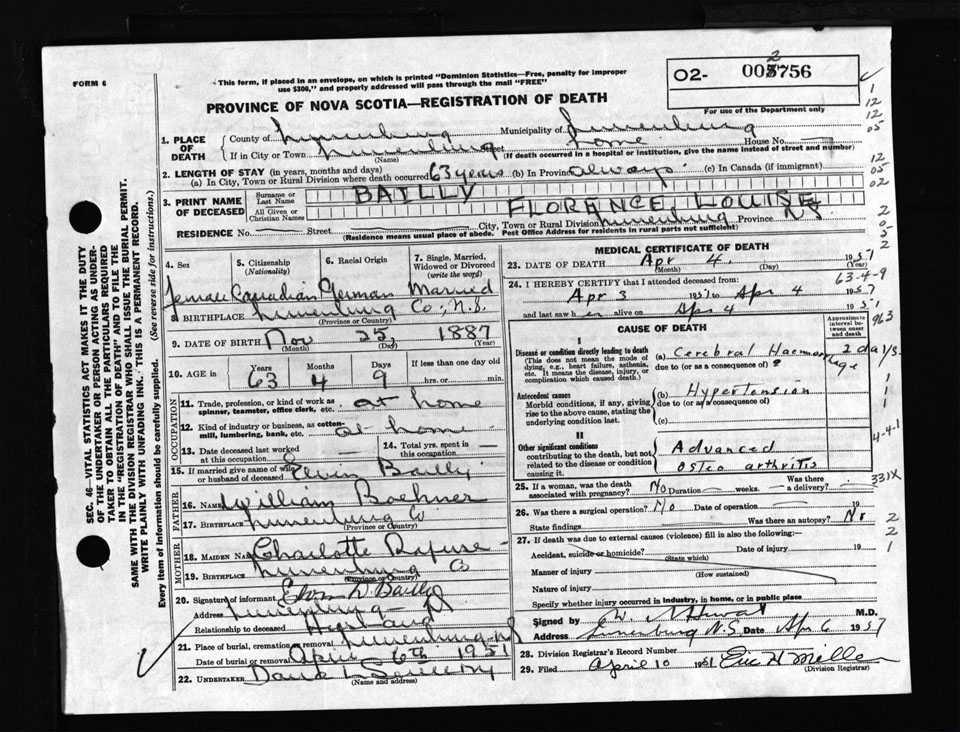 FORM 6
This form, if placed in an envelope, on which is printed "Dominion Statistics—Free, penalty for improper
use $300," and properly addressed will pass through the mail "FREE"
O2- 002756
For use of the Department only
PROVINCE OF NOVA SCOTIA—REGISTRATION OF DEATH
1. PLACE OF DEATH
County of Lunenburg Municipality of Lunenburg
If in City or Town Lunenburg Street home House No.
(Name) (If death occurred in a hospital or institution, give the name instead of street and number)
2. LENGTH OF STAY (in years, months and days)
(a) In City, Town or Rural Division where death occurred 63 years (b) In Province always (c) In Canada (if immigrant)
3. PRINT NAME OF DECEASED
Surname or Last Name BAILLY
All Given or Christian Names FLORANCE, LOUISE
RESIDENCE No. Street City, Town or Rural Division Lunenburg Province NS
(Residence means usual place of abode. Post Office Address for residents in rural parts not sufficient)
4. Sex
5. Citizenship (Nationality)
6. Racial Origin
7. Single, Married, Widowed or Divorced (write the word)
Female Canadian German Married
8. BIRTHPLACE Lunenburg Co; N.S.
(Province or Country)
9. DATE OF BIRTH Nov 25, 1887
(Month) (Day) (Year)
10. AGE in Years Months Days If less than one day old
63 4 9 hrs. or min.
OCCUPATION
11. Trade, profession, or kind of work as spinner, teamster, office clerk, etc. at home
12. Kind of industry or business, as cotton-mill, lumbering, bank, etc. at home
13. Date deceased last worked at this occupation
14. Total yrs. spent in this occupation
15. If married give name of wife or husband of deceased Elvin Bailly
FATHER
16. Name William Boehner
17. Birthplace Lunenburg Co
(Province or Country)
MOTHER
18. Maiden Name Charlotte Rafuse
19. Birthplace Lunenburg Co
(Province or Country)
20. Signature of informant Elvin D. Bailly
Address Lunenburg
Relationship to deceased Husband
21. Place of burial, cremation or removal Lunenburg NS
Date of burial or removal April 6th 1951
22. UNDERTAKER
(Name and address)
MEDICAL CERTIFICATE OF DEATH
23. DATE OF DEATH Apr 4, 1951
(Month) (Day) (Year)
24. I HEREBY CERTIFY that I attended deceased from
63-4-9
Apr 3 1951 to Apr 4 1957
and last saw her alive on Apr 4 1951
CAUSE OF DEATH
Approximate interval between onset and death
963
I
Disease or condition directly leading to death
(This does not mean the mode of dying, e.g., heart failure, asthenia, etc. It means the disease, injury, or complication which caused death.)
(a) Cerebral Haemorrhage 2 days.
due to (or as a consequence of)
Antecedent causes
Morbid conditions, if any, giving rise to the above cause, stating the underlying condition last.
(b) Hypertension
due to (or as a consequence of)
(c)
II
Other significant conditions
contributing to the death, but not related to the disease or condition causing it.
Advanced
Osteo arthritis
4-4-1
25. If a woman, was the death associated with pregnancy? No Duration weeks. Was there a delivery?
331X
26. Was there a surgical operation? No Date of operation 19
State findings Was there an autopsy? No
27. If death was due to external causes (violence) fill in also the following:
Accident, suicide or homicide? Date of injury 19
(State which)
Manner of injury
(How sustained)
Nature of injury
Specify whether injury occurred in industry, in home, or in public place
Signed by M.D.
Address Lunenburg N.S. Date Apr 6 1957
28. Division Registrar's Record Number
29. Filed April 10 1951 Eric H Miller
(Division Registrar)
SEC. 46—VITAL STATISTICS ACT MAKES IT THE DUTY
OF THE UNDERTAKER OR PERSON ACTING AS UNDER-
TAKER TO OBTAIN ALL THE PARTICULARS REQUIRED
IN THE "REGISTRATION OF DEATH" AND TO FILE THE
SAME WITH THE DIVISION REGISTRAR WHO SHALL ISSUE THE BURIAL PERMIT.
WRITE PLAINLY WITH UNFADING INK. THIS IS A PERMANENT RECORD.
Every item of information should be carefully supplied. (See reverse side for instructions.)
1
12
12
05
12
05
02
2
0
5
2
1
1
2
2
1